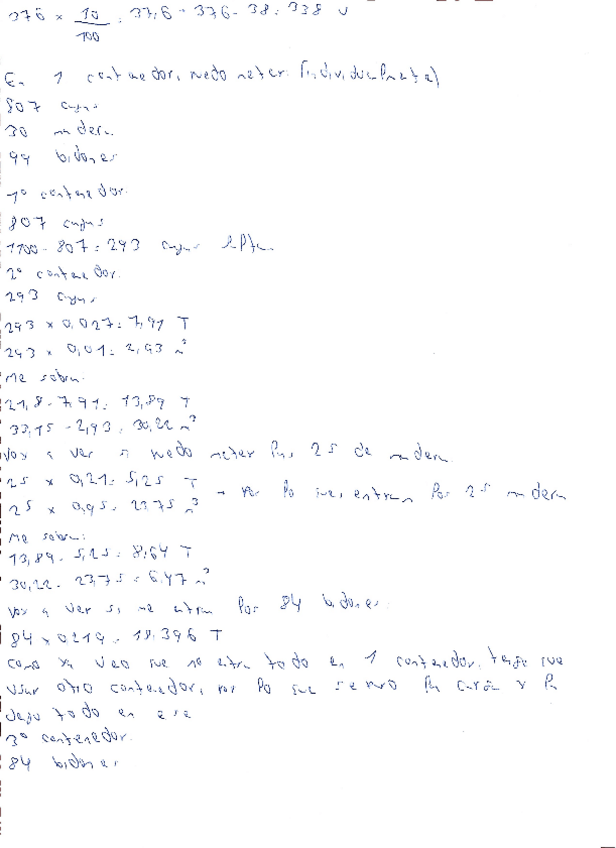 376 × 10/100 = 37,6 = 376 - 38 = 338 u
En 1 contenedor, puedo meter: (individualmente)
807 cajas
30 madera
99 bidones
1º contenedor:
807 cajas
1100 - 807 = 293 cajas faltan
2º contenedor:
293 cajas
293 × 0,027 = 7,91 T
293 × 0,01 = 2,93 m³
Me sobran:
21,8 - 7,91 = 13,89 T
33,15 - 2,93 = 30,22 m³
Voy a ver si puedo meter las 25 de madera
25 × 0,21 = 5,25 T
25 × 0,95 = 23,75 m³ → por lo que, entran las 25 madera
Me sobran:
13,89 - 5,25 = 8,64 T
30,22 - 23,75 = 6,47 m³
Voy a ver si me entran los 84 bidones:
84 × 0,219 = 18,396 T
como ya veo que no entra todo en 1 contenedor, tengo que
usar otro contenedor, por lo que separo la carga y la
dejo todo en ese
3º contenedor:
84 bidones